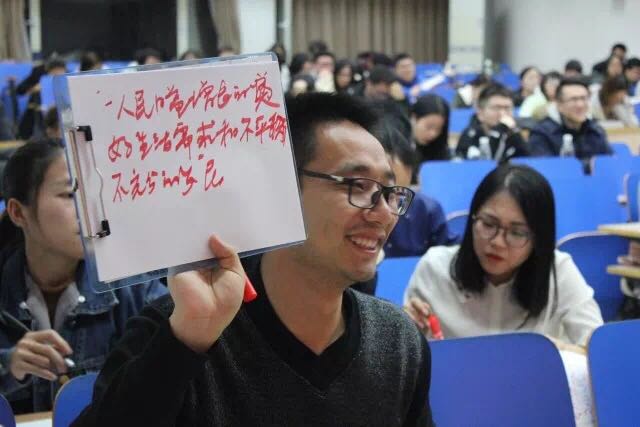 一人民日益增长的美
好生活需求和不平衡
不充分的